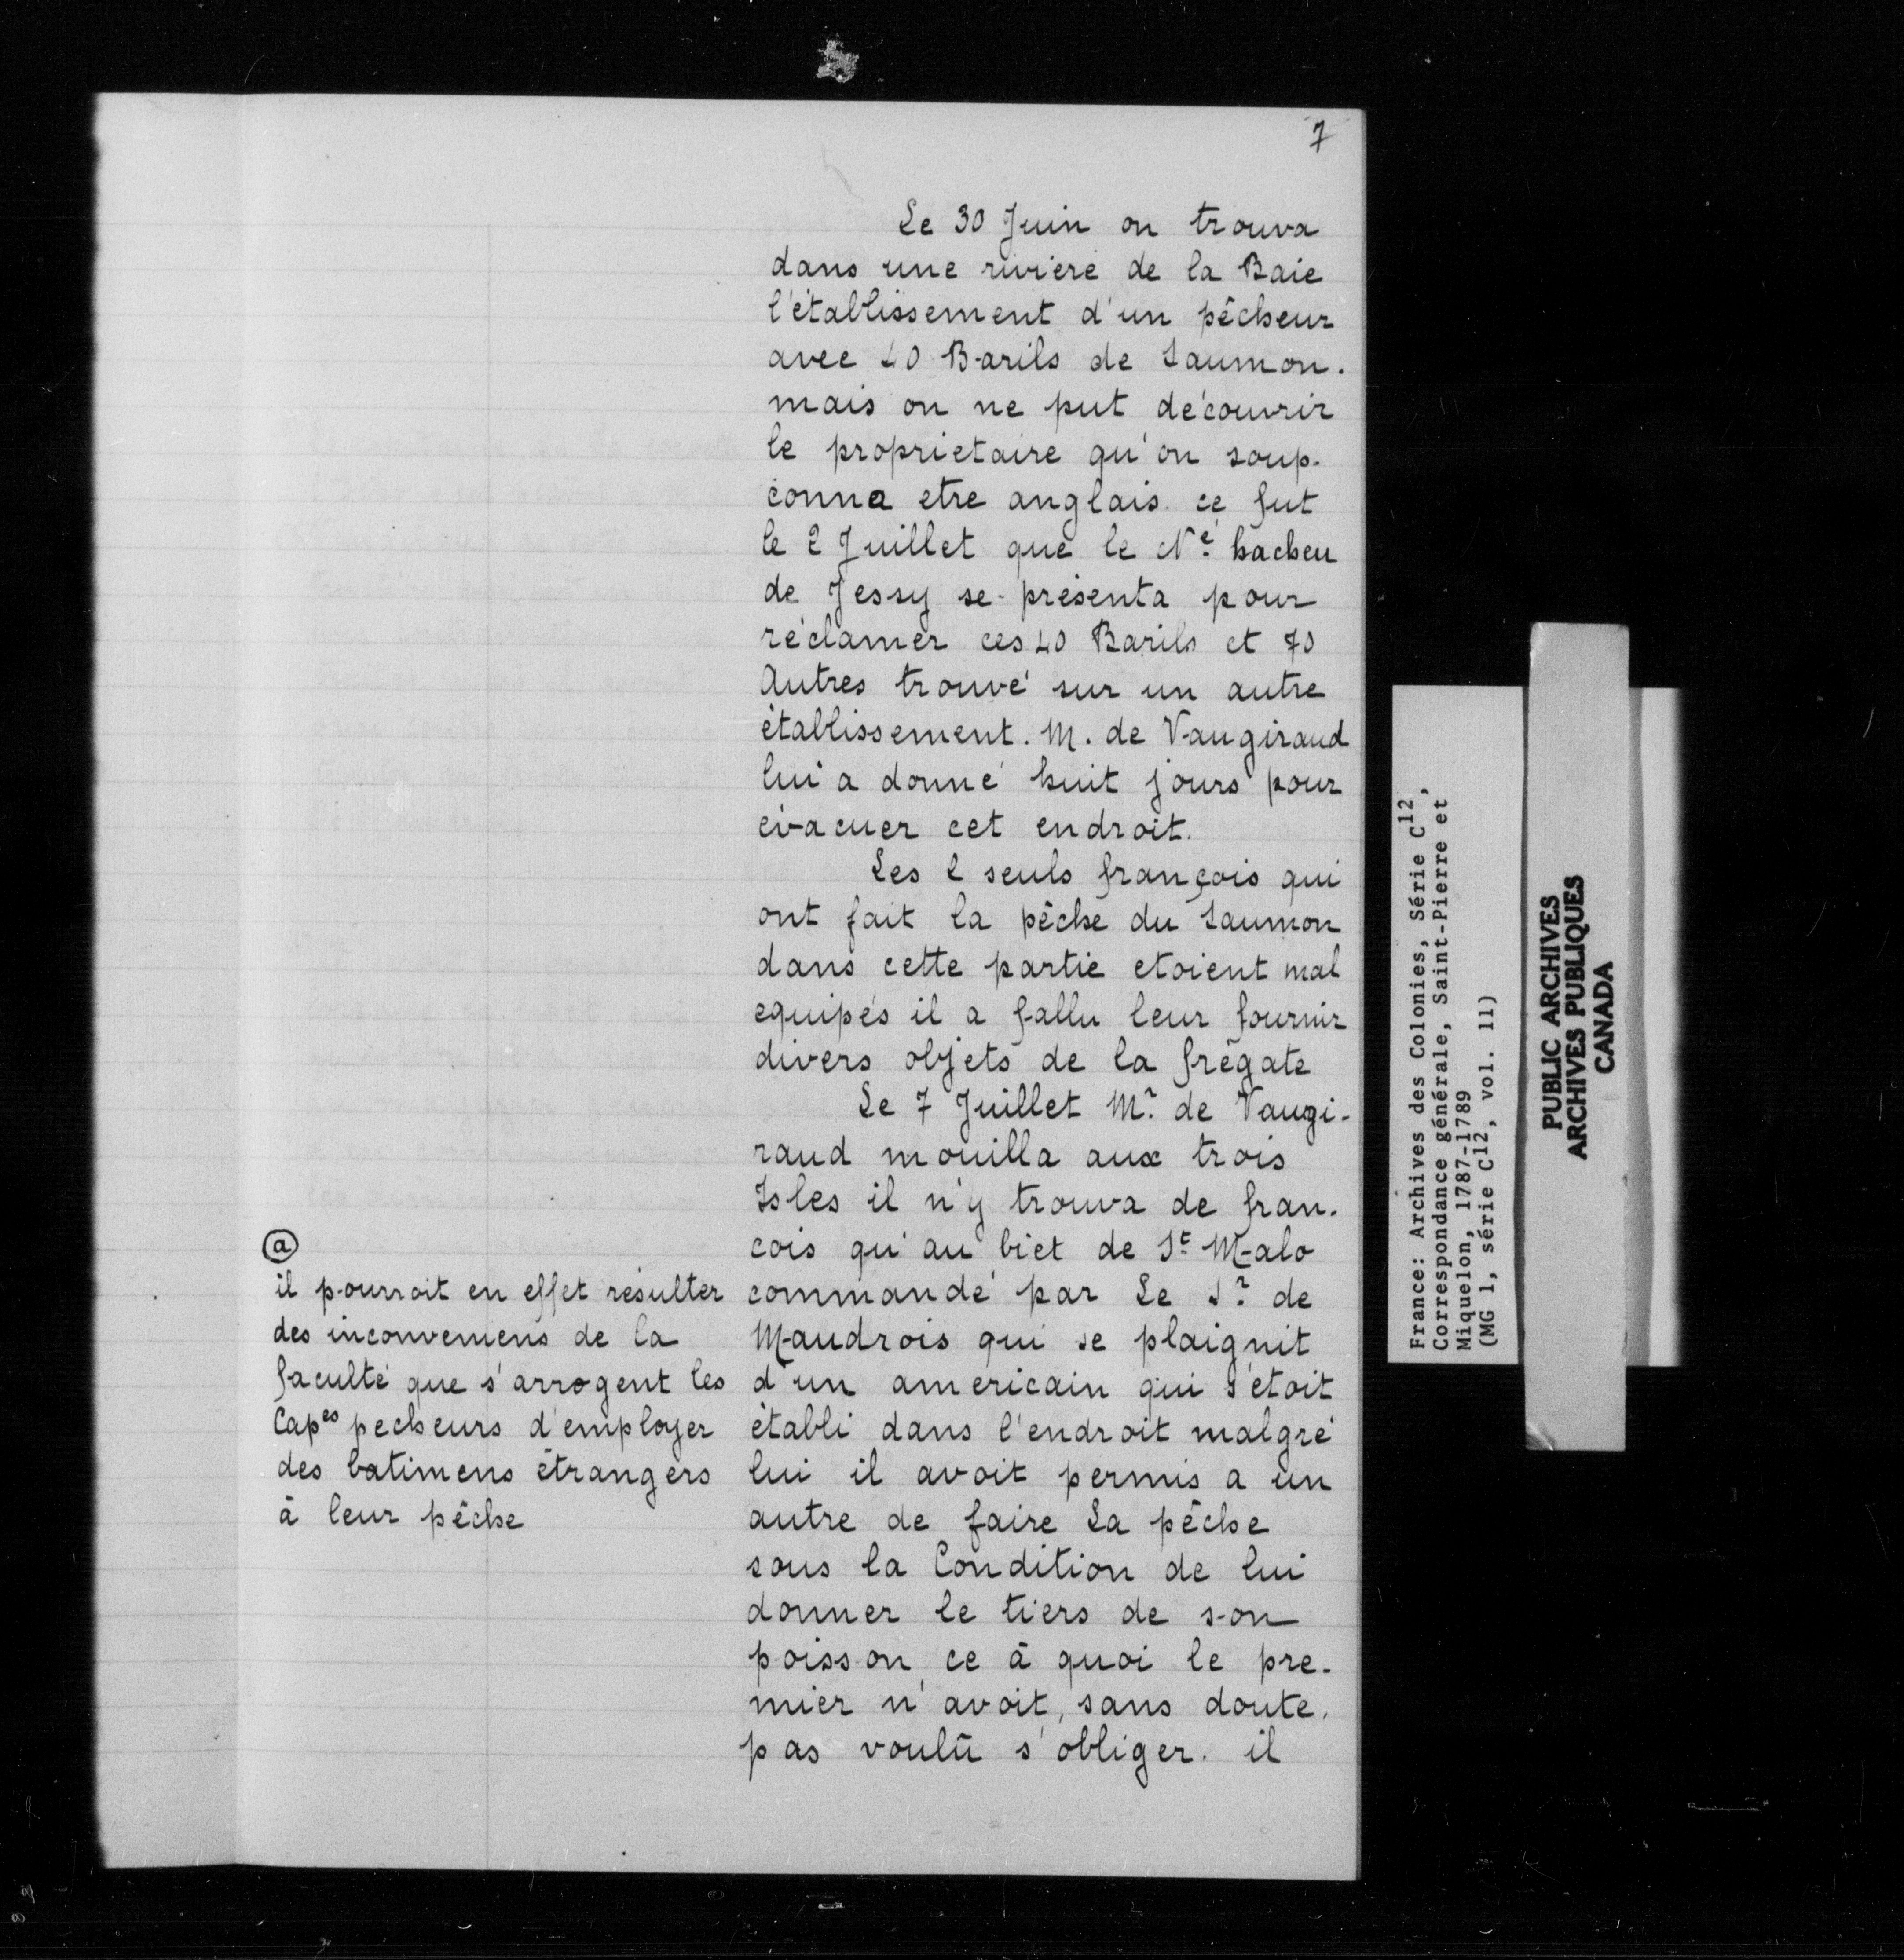 7
Le 30 Juin on trouva
dans une riviere de la Baie
l'établissement d'un pêcheur
avec 40 Barils de Saumon.
mais on ne put découvrir
le proprietaire qu'on soup-
conna etre anglais. ce fut
le 2 Juillet que le Né hacheu
de Jessy se présenta pour
réclamer ces 40 Barils et 70
Autres trouvé sur un autre
établissement. M. de Vaugiraud
lui a donné huit jours pour
évacuer cet endroit.
Les 2 seuls françois qui
ont fait la pêche du Saumon
dans cette partie etoient mal
equipés il a fallu leur fournir
divers objets de la frégate
Le 7 Juillet Mr. de Vaugi-
raud mouilla aux trois
Isles il n'y trouva de fran-
cois qu'au biet de St Malo
commandé par Le Sr. de
Maudrois qui se plaignit
d'un americain qui s'étoit
établi dans l'endroit malgré
lui il avoit permis a un
autre de faire La pêche
sous la Condition de lui
donner le tiers de son
poisson ce à quoi le pre-
mier n'avoit, sans doute,
pas voulû s'obliger. il
(a)
il pourroit en effet résulter
des inconveniens de la
faculté que s'arrogent les
Capes pecheurs d'employer
des batimens étrangers
à leur pêche
France: Archives des Colonies, Série C12,
Correspondance générale, Saint-Pierre et
Miquelon, 1787-1789
(MG 1, série C12, vol. 11)
PUBLIC ARCHIVES
ARCHIVES PUBLIQUES
CANADA